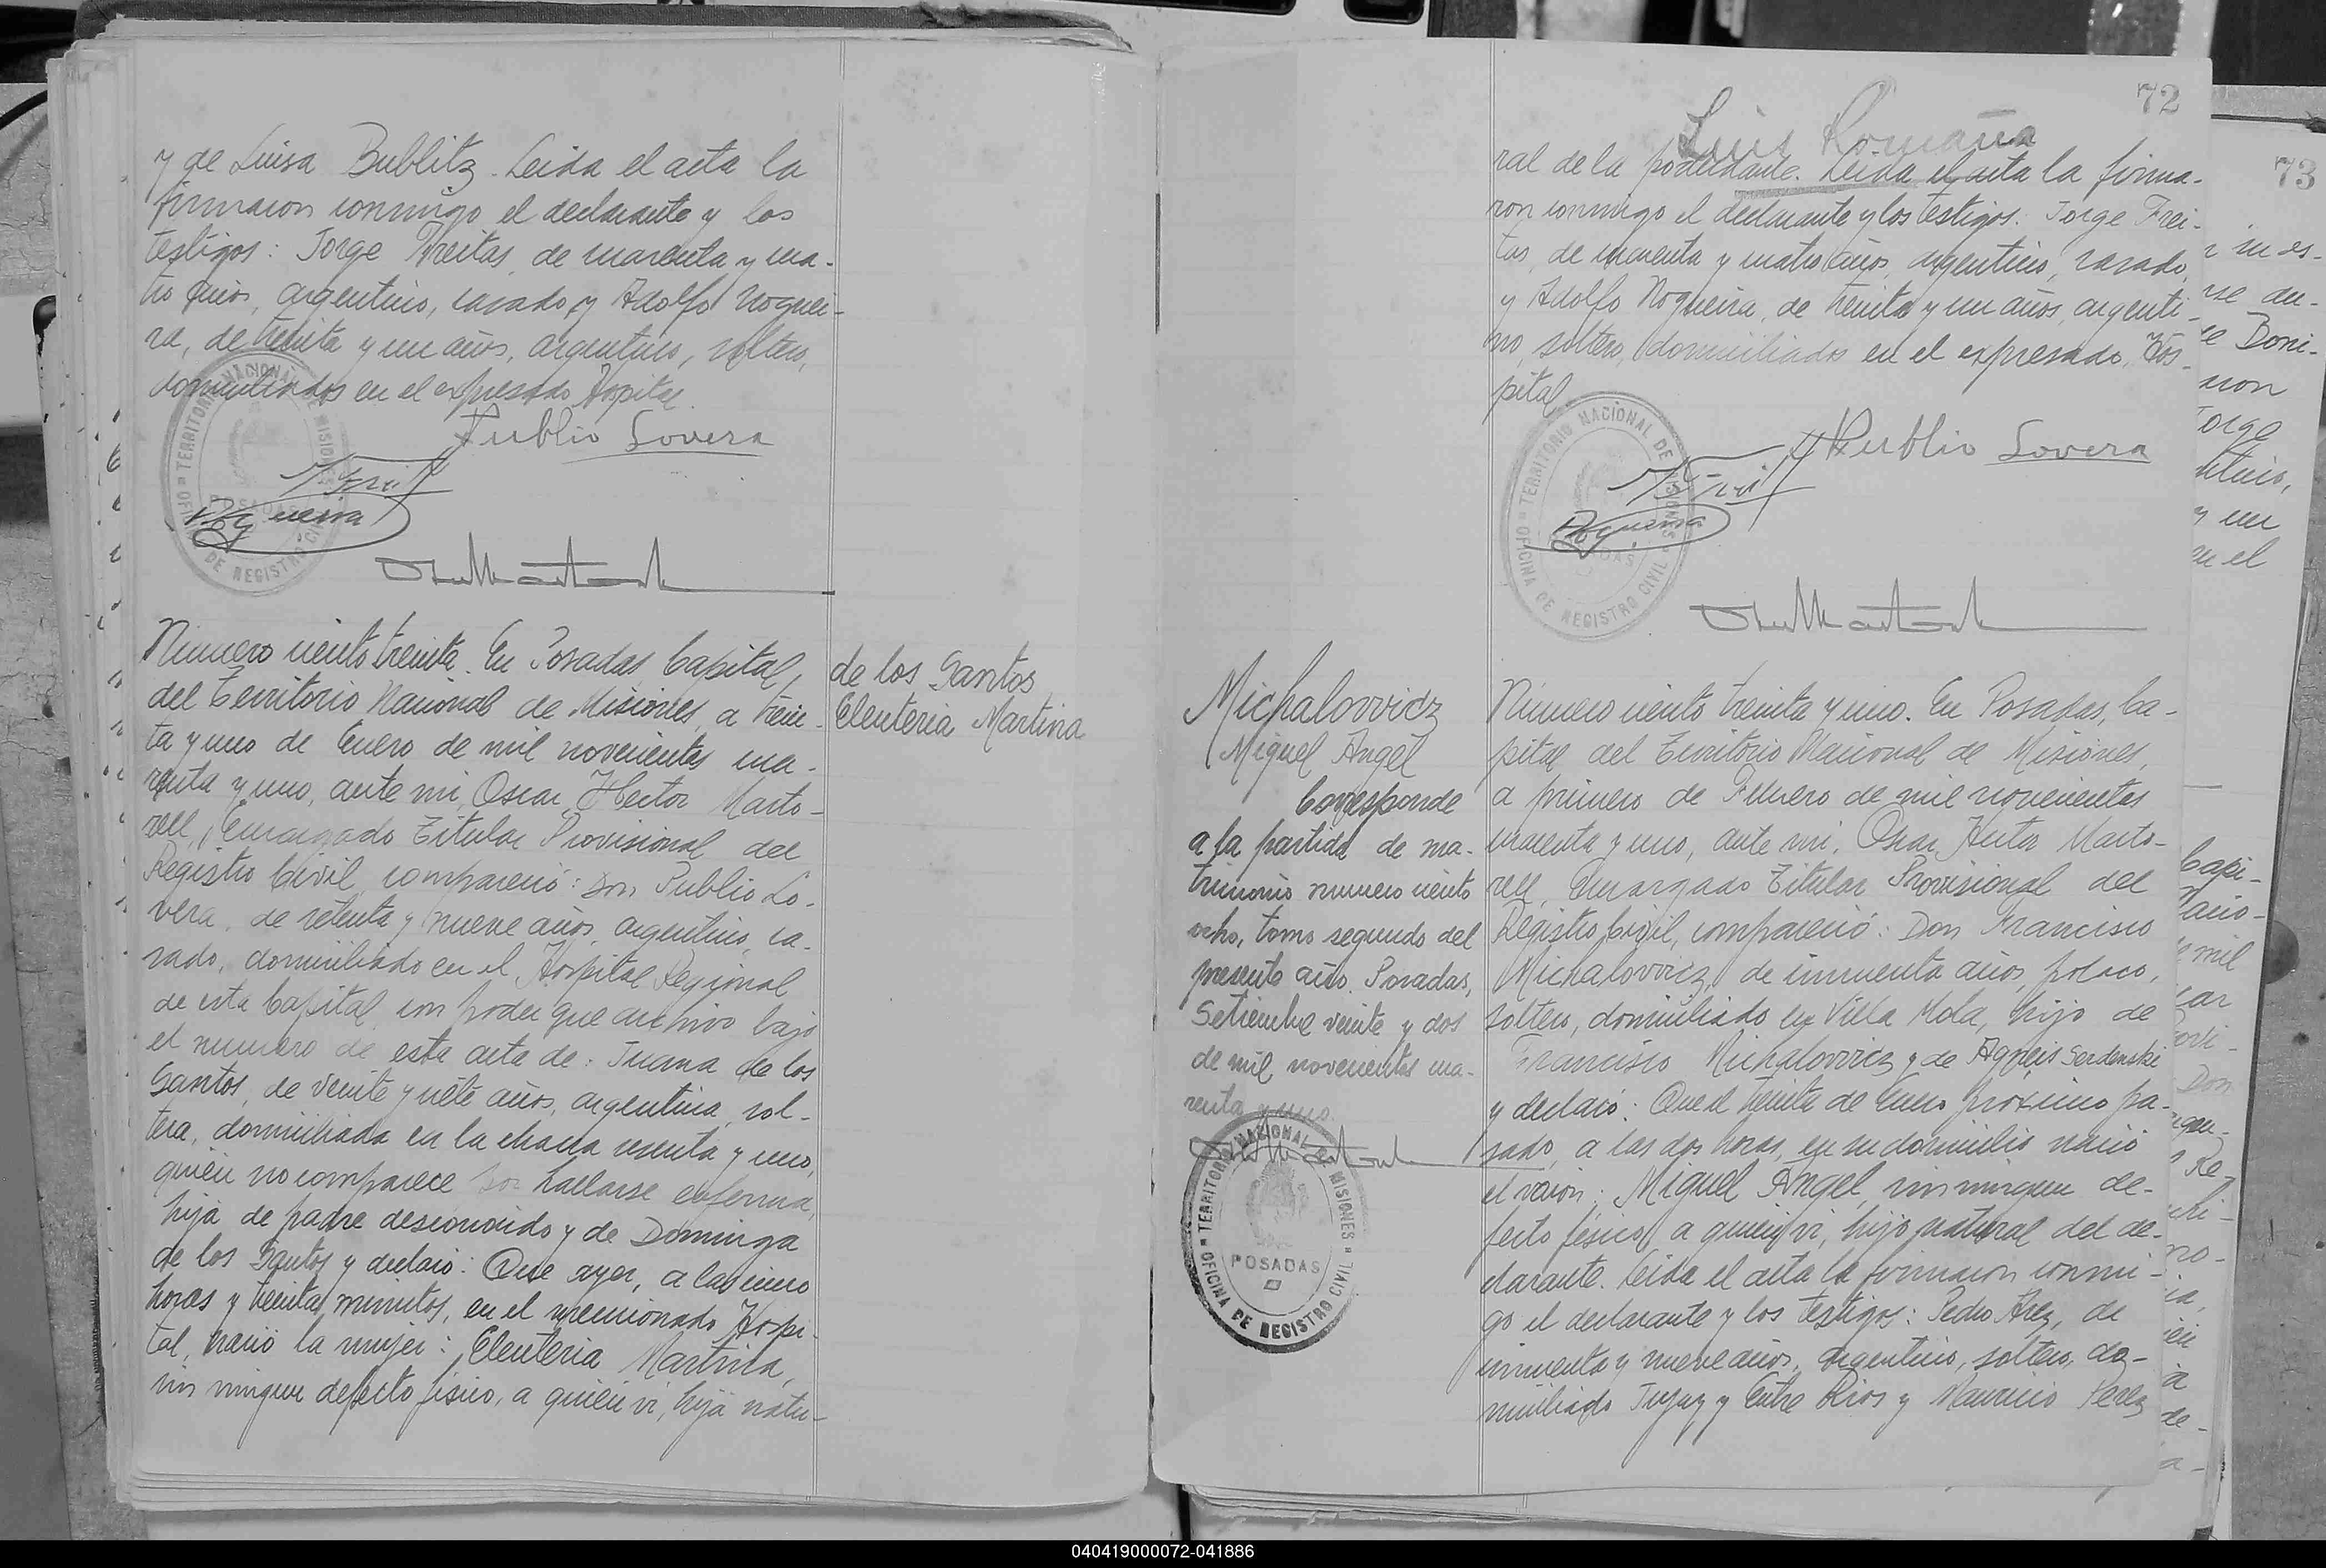 y de Luisa Bublitz. Leida el acta la
firmaron conmigo el declarante y los
testigos: Jorge Freitas, de cuarenta y cua-
tro años, argentino, casado y Adolfo Noguei-
ra, de treinta y un años, argentino, soltero,
domiciliados en el expresado Hospital.
Publio Lovera
Nogueira
TERRITORIO NACIONAL DE MISIONES
OFICINA DE REGISTRO CIVIL
POSADAS
Número ciento treinta. En Posadas, Capital,
del Territorio Nacional de Misiones, a trein-
ta y uno de Enero de mil novecientos cua-
renta y uno, ante mi, Oscar Hector Marto-
rell, Encargado Titular Provisional del
Registro Civil, compareció: Don Publio Lo-
vera, de setenta y nueve años, argentino, ca-
sado, domiciliado en el Hospital Regional
de esta Capital, con poder que archivo bajo
el numero de esta acta de: Juana de los
Santos, de veinte y siete años, argentina, sol-
tera, domiciliada en la chacra sesenta y uno,
quien no comparece por hallarse enferma,
hija de padre desconocido y de Dominga
de los Santos y declaró: Que ayer, a las cinco
horas y treinta minutos, en el mencionado Hospi-
tal, nació la mujer: Eleuteria Martina,
sin ningun defecto fisico, a quien vi, hija natu-
de los Santos
Eleuteria Martina
72
Luis Romaña
ral de la poderdante. Leida el acta la firma-
ron conmigo el declarante y los testigos: Jorge Frei-
tas, de cuarenta y cuatro años, argentino, casado,
y Adolfo Nogueira, de treinta y un años, argenti-
no, soltero, domiciliados en el expresado Hos-
pital.
Publio Lovera
Nogueira
TERRITORIO NACIONAL DE MISIONES
OFICINA DE REGISTRO CIVIL
POSADAS
Michalovvicz
Miguel Angel
Corresponde
a la partida de ma-
trimonio numero ciento
ocho, tomo segundo del
presente año. Posadas,
Setiembre veinte y dos
de mil novecientos cua-
renta y uno.
TERRITORIO NACIONAL DE MISIONES
POSADAS
OFICINA DE REGISTRO CIVIL
Número ciento treinta y uno. En Posadas, Ca-
pital del Territorio Nacional de Misiones,
a primero de Febrero de mil novecientos
cuarenta y uno, ante mi, Oscar Hector Marto-
rell, Encargado Titular Provisional del
Registro Civil, compareció: Don Francisco
Michalovvicz, de cincuenta años, polaco,
soltero, domiciliado en Villa Mola, hijo de
Francisco Michalovvicz y de Agneis Serdenski
y declaró: Que el treinta de Enero próximo pa-
sado, a las dos horas, en su domicilio nació
el varón: Miguel Angel, sin ningun de-
fecto fisico, a quien vi, hijo natural del de-
clarante. Leida el acta la firmaron conmi-
go el declarante y los testigos: Pedro Arez, de
cincuenta y nueve años, argentino, soltero, do-
miciliado Jujuy y Entre Rios y Mauricio Perez
73
r su es-
rse du-
e Doni-
aron
orge
ntino,
y un
en el
Capi-
acio-
e mil
car
ovi-
Don
rgen-
Re-
chi-
no-
ia,
ien
a
de-
a-
040419000072-041886